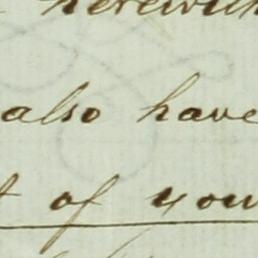 herewith
also have
of you